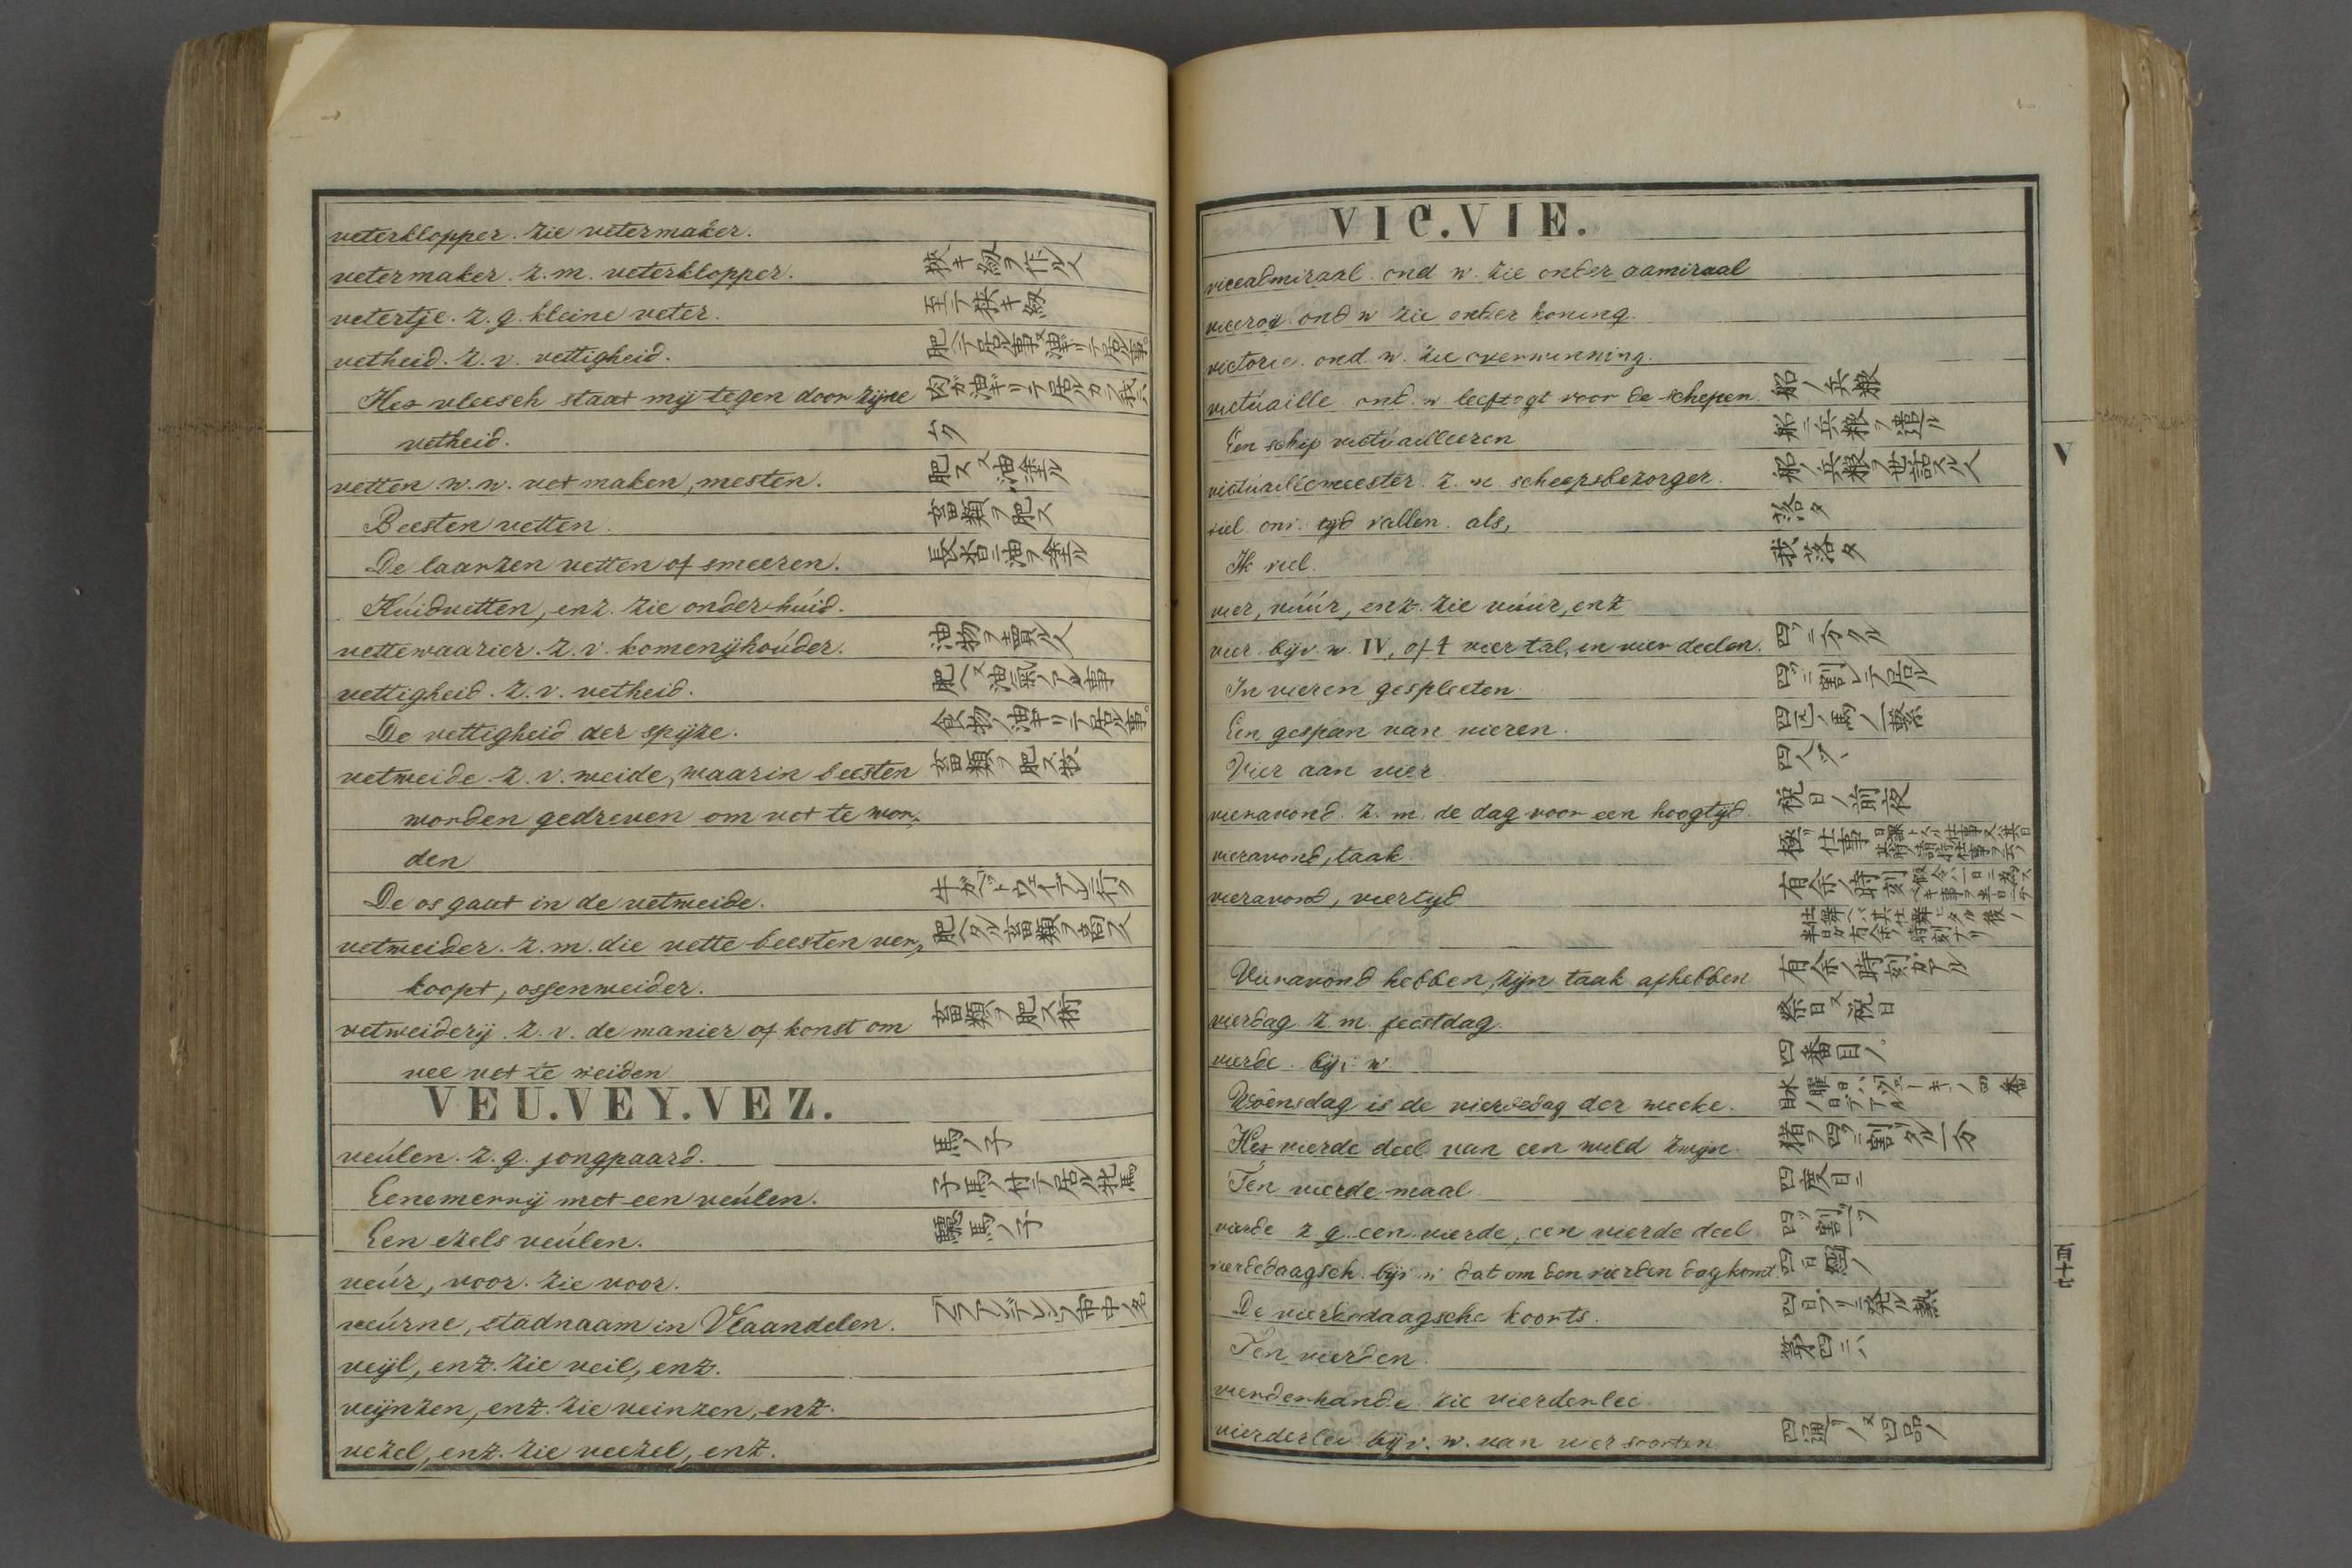 veterklopper. zie vetermaker.
vetermaker. z.m. veterklopper. 狭キ紐ヲ作ル人
vetertje. z.g. kleine veter. 至テ狭キ紐
vetheid. z.v. vettigheid. 肥テ居ル事又油ギリテ居ル事。
Het vleesch staat mij tegen door zijne 肉ガ油ギリテ居ルカラ我ハ
vetheid.
vetten. w.w. vet maken, mesten. 肥ス又油塗ル
Beesten vetten. 畜類ヲ肥ス
De laarzen vetten of smeeren. 長沓ニ油ヲ塗ル
Húidvetten, enz. zie onder húid.
vettewaarier. z.v. komenijhoúder. 油物ヲ賣ル人
vettigheid. z.v. vetheid. 肥へ又油氣ノアル事
De vettigheid der spijze. 食物ノ油ギリテ居ル事。
vetweide. z.v. weide, waarin beesten 畜類ヲ肥ス牧
worden gedreven om vet te wor,
den
De os gaat in de vetweide.
vetweider. z.m. die vette beesten ver, 肥ヘタル畜類ヲ商フ人
koopt, ossenweider.
vetweiderij. z.v. de manier of konst om 畜類ヲ肥ス術
vee vet te weiden
VEU.VEY.VEZ.
veúlen. z.g. jongpaard. 馬ノ子
Eene merrij met een veúlen. 子馬ノ付テ居ル牝馬
Een ezels veúlen. 驢馬ノ子
veúr, voor. zie voor.
veúrne, stadnaam in Vlaandelen.
veijl, enz. zie veil, enz.
veijnzen, enz. zie veinzen, enz.
vezel, enz. zie veezel, enz.
VIC.VIE.
viceadmiraal. ond w. zie onder aamiraal
viceroi. ond w zie onder koning.
victorie. ond. w. zie overwinning.
victúaille ond. w leeftogt voor de schepen 船ノ兵粮
Een schip victúailleeren 船ニ兵粮ヲ遣ル
victúailiemeester. z. m. scheepsbezorger. 船ノ兵粮ヲ世話スル人
viel. onv. tyd vallen. als, 落タ
Ik viel. 我落タ
vier, vúúr, enz. zie vúúr, enz
vier. bijv. w. IV, of 4 viertal, in vier deelen. 四ツニ分クル
In vieren gespleeten 四ツニ割レテ居ル
Een gespan van vieren. 四疋ノ馬ノ一繋
Vier aan vier 四人ツヽ
vieravond. z. m. de dag voor een hoogtijd. 祝日ノ前夜
vieravond, taak. 極リ仕事
vieravond, viertijd 有余ノ時刻
Vieravond hebben, zijn taak afhebben 有余ノ時刻ガアル
vierdag. z. m. feestdag. 祭日又祝日
vierde. bijv. w. 四番目ノ
Woênsdag is de vierdedag der weeke.
Het vierde deel van een wild zwijn. 猪ヲ四ツニ割リタル一分
Ten vierde maal 四度目ニ
vierde z g. een vierde, een vierde deel 四ツ割一ツ
vierdedaagsch. bijv. w dat om den vierden dag komt. 四日毎ノ
De vierdendaagsche koorts.
Ten vierden. 第四ニハ
vierdenhande. zie vierderlei
vierderlei bijv. w. van vier soorten 四通リノ又四品ノ
V
百四十七